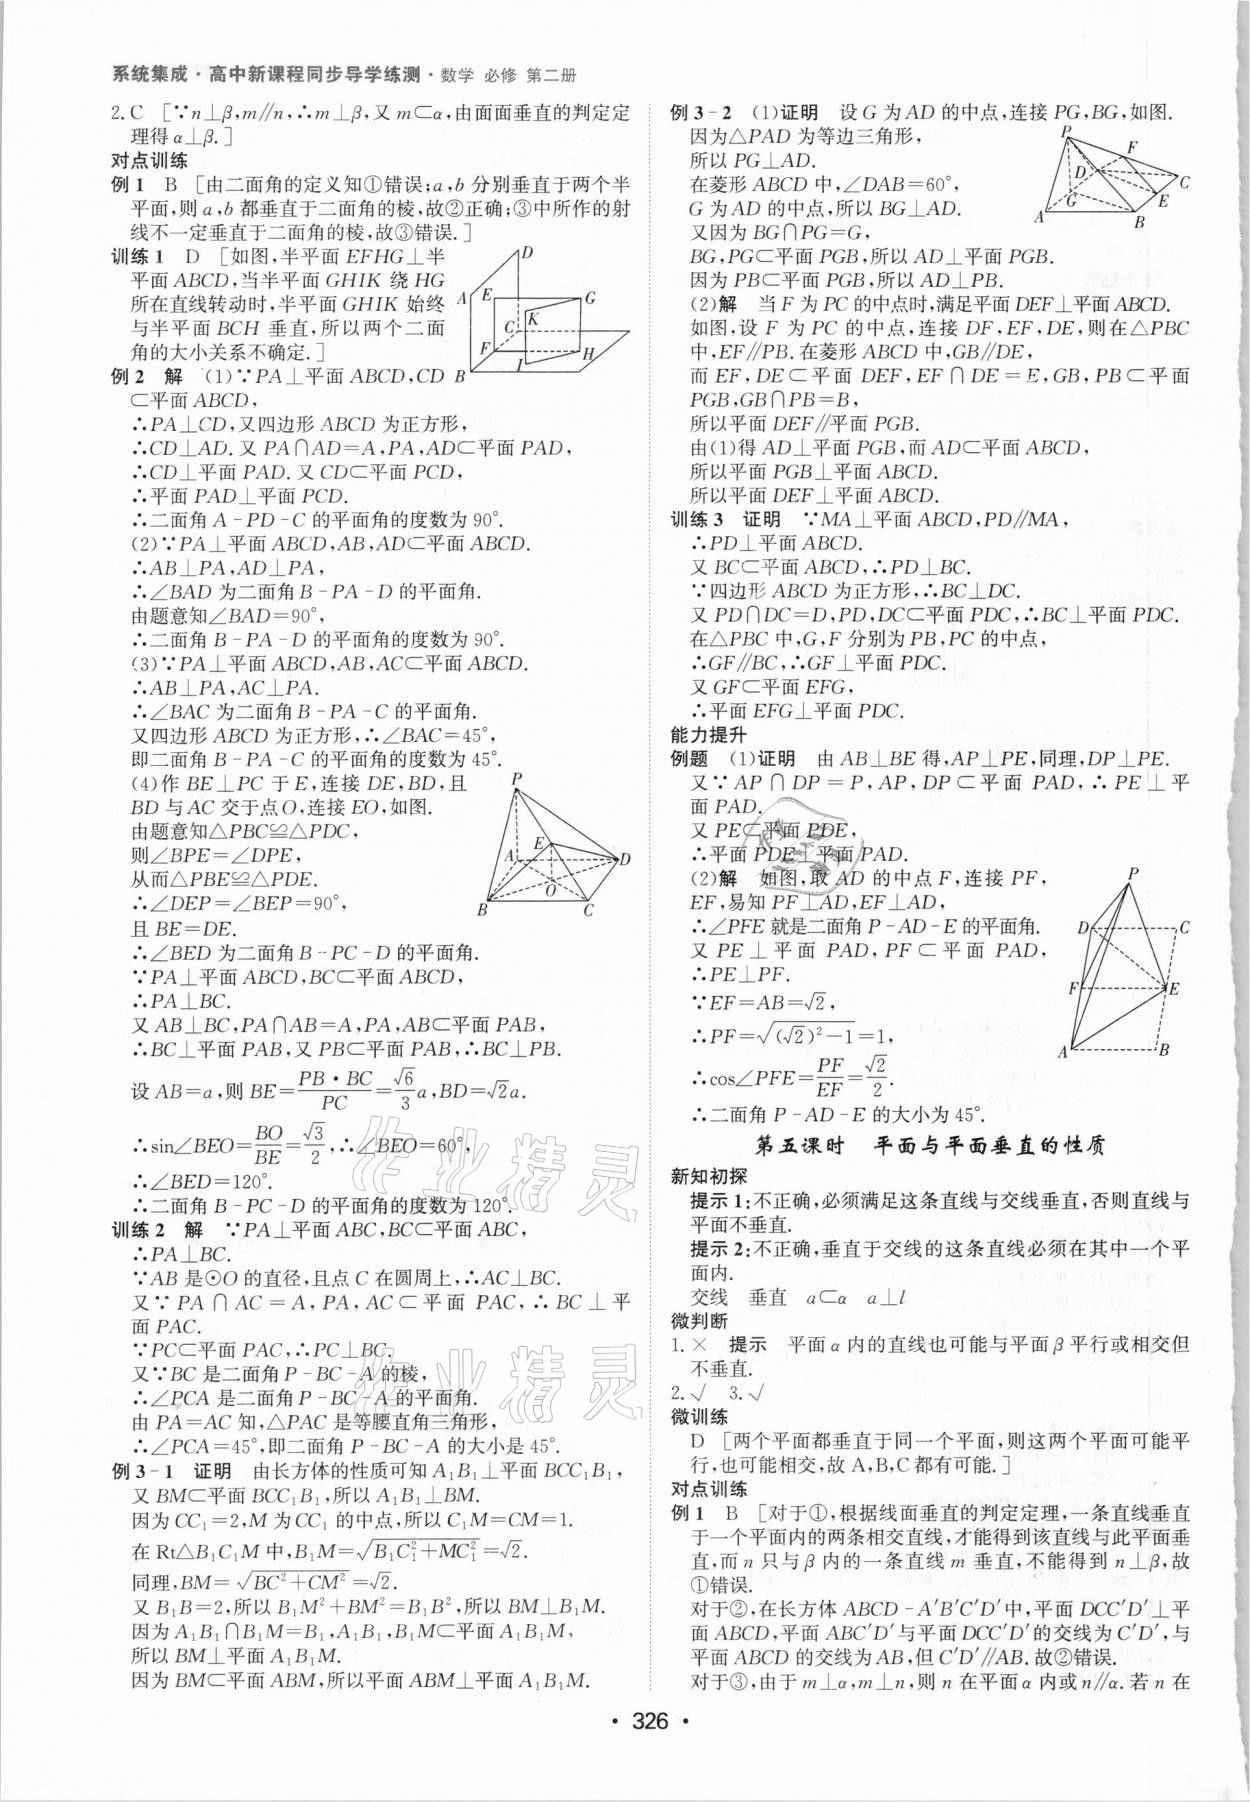 系统集成·高中新课程同步导学练测·数学 必修 第二册
2.C [∵n⊥β,m∥n,∴m⊥β,又m⊂α,由面面垂直的判定定
理得α⊥β.]
对点训练
例1 B [由二面角的定义知①错误;a,b分别垂直于两个半
平面,则a,b都垂直于二面角的棱,故②正确;③中所作的射
线不一定垂直于二面角的棱,故③错误.]
训练1 D [如图,半平面EFHG⊥半
平面ABCD,当半平面GHIK绕HG
所在直线转动时,半平面GHIK始终
与半平面BCH垂直,所以两个二面
角的大小关系不确定.]
D
A E G
K
C
F H
I
B
例2 解 (1)∵PA⊥平面ABCD,CD
⊂平面ABCD,
∴PA⊥CD,又四边形ABCD为正方形,
∴CD⊥AD.又PA∩AD=A,PA,AD⊂平面PAD,
∴CD⊥平面PAD.又CD⊂平面PCD,
∴平面PAD⊥平面PCD.
∴二面角A-PD-C的平面角的度数为90°.
(2)∵PA⊥平面ABCD,AB,AD⊂平面ABCD,
∴AB⊥PA,AD⊥PA,
∴∠BAD为二面角B-PA-D的平面角.
由题意知∠BAD=90°,
∴二面角B-PA-D的平面角的度数为90°.
(3)∵PA⊥平面ABCD,AB,AC⊂平面ABCD.
∴AB⊥PA,AC⊥PA.
∴∠BAC为二面角B-PA-C的平面角.
又四边形ABCD为正方形,∴∠BAC=45°,
即二面角B-PA-C的平面角的度数为45°.
(4)作BE⊥PC于E,连接DE,BD,且
BD与AC交于点O,连接EO,如图.
由题意知△PBC≌△PDC,
则∠BPE=∠DPE,
从而△PBE≌△PDE.
∴∠DEP=∠BEP=90°,
且BE=DE.
P
E
A D
O
B C
∴∠BED为二面角B-PC-D的平面角.
∵PA⊥平面ABCD,BC⊂平面ABCD,
∴PA⊥BC.
又AB⊥BC,PA∩AB=A,PA,AB⊂平面PAB,
∴BC⊥平面PAB,又PB⊂平面PAB,∴BC⊥PB.
设AB=a,则BE=PB·BC/PC=√6/3a,BD=√2a.
∴sin∠BEO=BO/BE=√3/2,∴∠BEO=60°,
∴∠BED=120°.
∴二面角B-PC-D的平面角的度数为120°.
训练2 解 ∵PA⊥平面ABC,BC⊂平面ABC,
∴PA⊥BC.
∵AB是⊙O的直径,且点C在圆周上,∴AC⊥BC.
又∵PA∩AC=A,PA,AC⊂平面PAC,∴BC⊥平
面PAC.
∵PC⊂平面PAC,∴PC⊥BC.
又∵BC是二面角P-BC-A的棱,
∴∠PCA是二面角P-BC-A的平面角.
由PA=AC知,△PAC是等腰直角三角形,
∴∠PCA=45°,即二面角P-BC-A的大小是45°.
例3-1 证明 由长方体的性质可知A₁B₁⊥平面BCC₁B₁,
又BM⊂平面BCC₁B₁,所以A₁B₁⊥BM.
因为CC₁=2,M为CC₁的中点,所以C₁M=CM=1.
在Rt△B₁C₁M中,B₁M=√(B₁C₁²+MC₁²)=√2.
同理,BM=√(BC²+CM²)=√2.
又B₁B=2,所以B₁M²+BM²=B₁B²,所以BM⊥B₁M.
因为A₁B₁∩B₁M=B₁,A₁B₁,B₁M⊂平面A₁B₁M,
所以BM⊥平面A₁B₁M.
因为BM⊂平面ABM,所以平面ABM⊥平面A₁B₁M.
例3-2 (1)证明 设G为AD的中点,连接PG,BG,如图.
因为△PAD为等边三角形,
所以PG⊥AD.
在菱形ABCD中,∠DAB=60°,
G为AD的中点,所以BG⊥AD.
又因为BG∩PG=G,
BG,PG⊂平面PGB,所以AD⊥平面PGB.
因为PB⊂平面PGB,所以AD⊥PB.
P
F
D C
G E
A B
(2)解 当F为PC的中点时,满足平面DEF⊥平面ABCD.
如图,设F为PC的中点,连接DF,EF,DE,则在△PBC
中,EF∥PB.在菱形ABCD中,GB∥DE,
而EF,DE⊂平面DEF,EF∩DE=E,GB,PB⊂平面
PGB,GB∩PB=B,
所以平面DEF∥平面PGB.
由(1)得AD⊥平面PGB,而AD⊂平面ABCD,
所以平面PGB⊥平面ABCD.
所以平面DEF⊥平面ABCD.
训练3 证明 ∵MA⊥平面ABCD,PD∥MA,
∴PD⊥平面ABCD.
又BC⊂平面ABCD,∴PD⊥BC.
∵四边形ABCD为正方形,∴BC⊥DC.
又PD∩DC=D,PD,DC⊂平面PDC,∴BC⊥平面PDC.
在△PBC中,G,F分别为PB,PC的中点,
∴GF∥BC,∴GF⊥平面PDC.
又GF⊂平面EFG,
∴平面EFG⊥平面PDC.
能力提升
例题 (1)证明 由AB⊥BE得,AP⊥PE,同理,DP⊥PE.
又∵AP∩DP=P,AP,DP⊂平面PAD,∴PE⊥平
面PAD.
又PE⊂平面PDE,
∴平面PDE⊥平面PAD.
(2)解 如图,取AD的中点F,连接PF,
EF,易知PF⊥AD,EF⊥AD,
∴∠PFE就是二面角P-AD-E的平面角.
又PE⊥平面PAD,PF⊂平面PAD,
∴PE⊥PF.
∵EF=AB=√2,
∴PF=√((√2)²-1)=1,
∴cos∠PFE=PF/EF=√2/2.
∴二面角P-AD-E的大小为45°.
P
D C
F E
A B
第五课时 平面与平面垂直的性质
新知初探
提示1:不正确,必须满足这条直线与交线垂直,否则直线与
平面不垂直.
提示2:不正确,垂直于交线的这条直线必须在其中一个平
面内.
交线 垂直 a⊂α a⊥l
微判断
1.× 提示 平面α内的直线也可能与平面β平行或相交但
不垂直.
2.√ 3.√
微训练
D [两个平面都垂直于同一个平面,则这两个平面可能平
行,也可能相交,故A,B,C都有可能.]
对点训练
例1 B [对于①,根据线面垂直的判定定理,一条直线垂直
于一个平面内的两条相交直线,才能得到该直线与此平面垂
直,而n只与β内的一条直线m垂直,不能得到n⊥β,故
①错误.
对于②,在长方体ABCD-A′B′C′D′中,平面DCC′D′⊥平
面ABCD,平面ABC′D′与平面DCC′D′的交线为C′D′,与
平面ABCD的交线为AB,但C′D′∥AB.故②错误.
对于③,由于m⊥α,m⊥n,则n在平面α内或n∥α.若n在
·326·
作业精灵
作业精灵